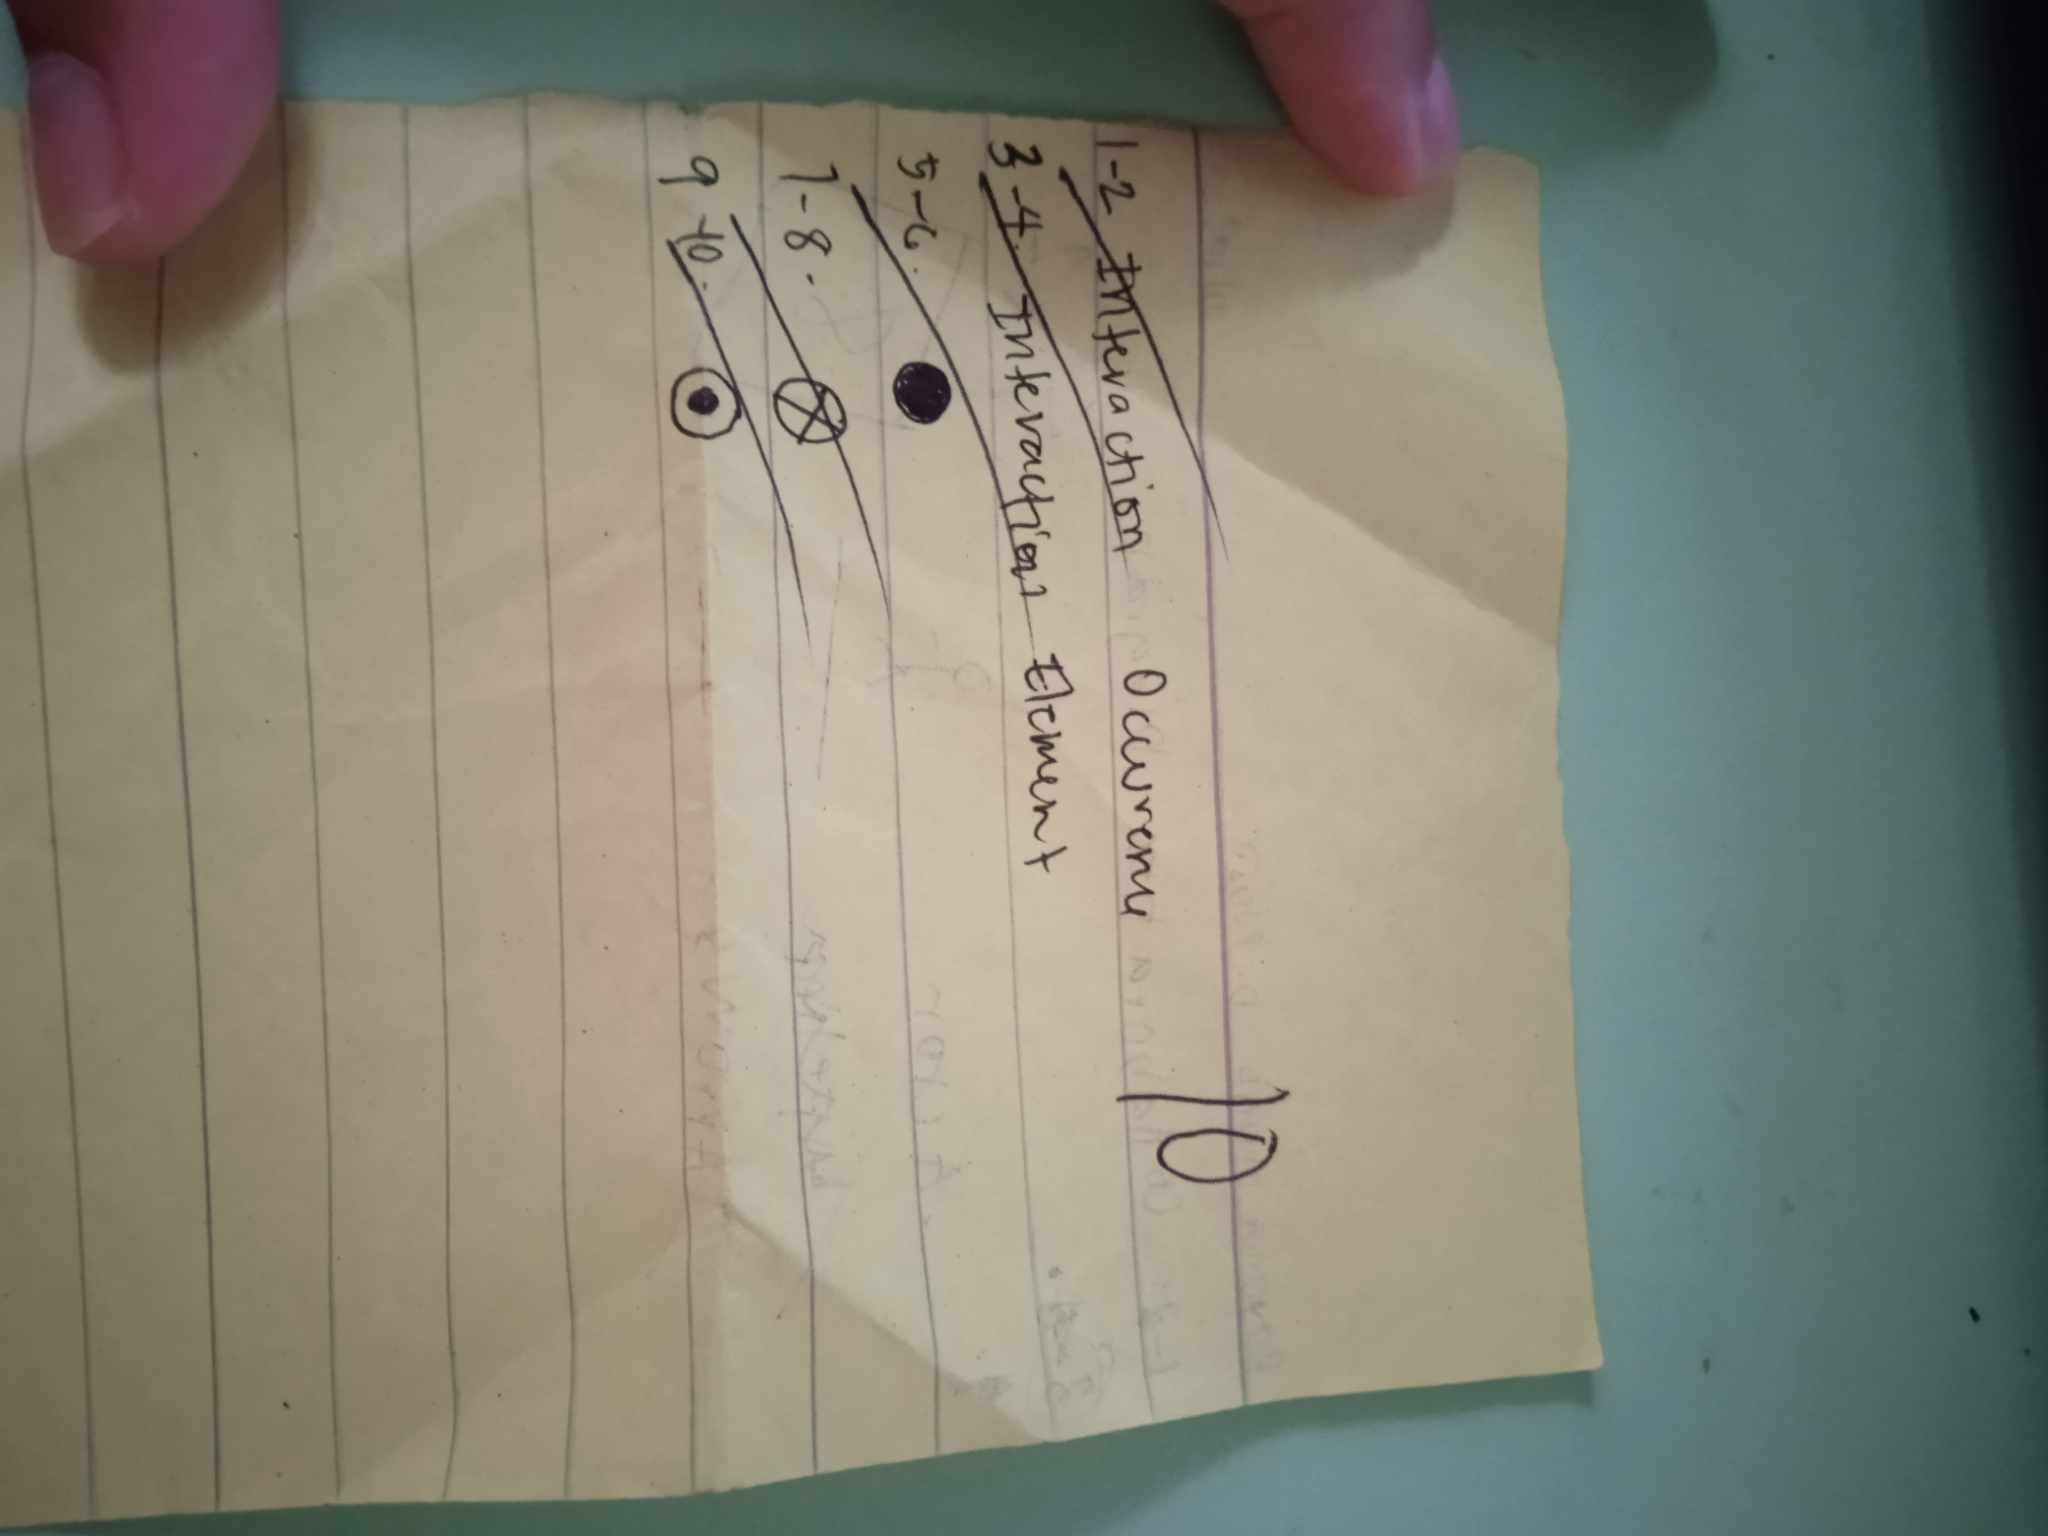 10
1-2 Interaction Occurence
3-4. Interaction Element
5-6.
7-8.
9-10.